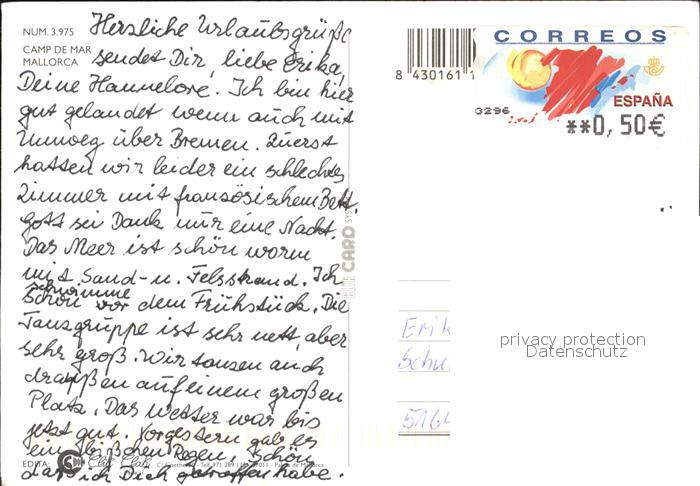 NUM. 3.975
CAMP DE MAR
MALLORCA
Herzliche Urlaubsgrüße
sendet Dir, liebe Erika,
Deine Hannelore! Ich bin hier
gut gelandet wenn auch mit
Umweg über Bremen. Zuerst
hatten wir leider ein schlechtes
Zimmer mit französischem Bett,
gott sei Dank nur eine Nacht.
Das Meer ist schön warm
mit Sand- u. Felsstrand. Ich
schwimme
schon vor dem Frühstück. Die
Tanzgruppe ist sehr nett, aber
sehr groß. Wir tanzen auch
draußen auf einem großen
Platz. Das Wetter war bis
jetzt gut. Vorgestern gab es
ein bißchen Regen. Schön
das ich Dich getroffen habe.
EDITA:
CARD
8 430161 1
CORREOS
ESPAÑA
0296
**0,50€
Erik
Schu
5164
privacy protection
Datenschutz